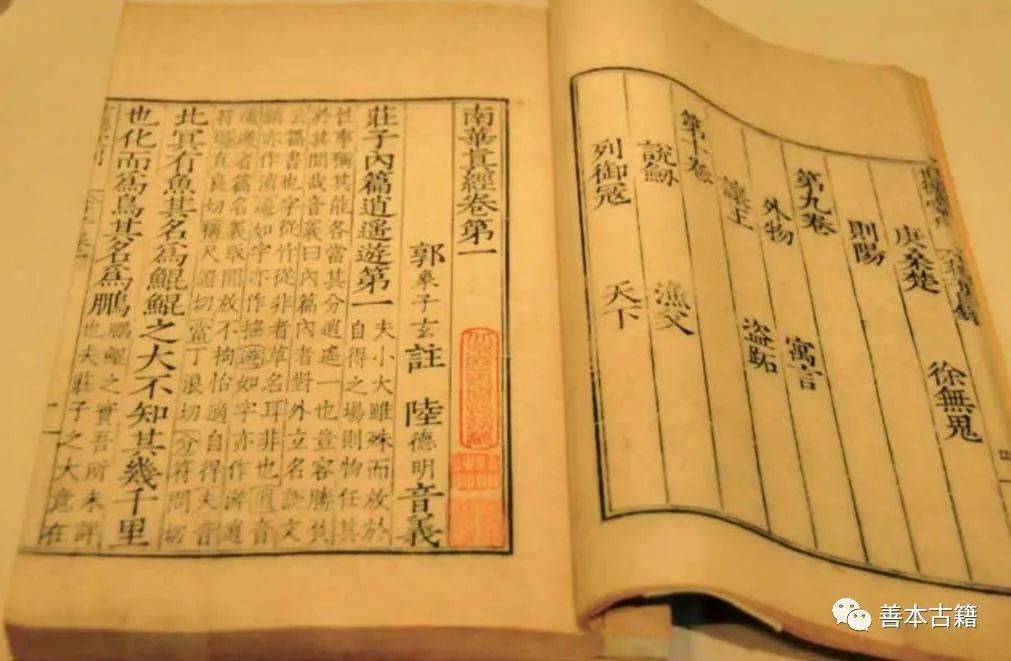 庚桑楚 徐無鬼
則陽
第九卷
外物 寓言
讓王 盜跖
第十卷
說劎 漁父
列御寇 天下
南華真經卷第一
郭象子玄註 陸德明音義
莊子內篇逍遥遊第一
夫小大雖殊而放於
自得之場則物任其
性事稱其能各當其分逍遥一也豈容勝負
於其間哉音義曰內篇內者對外立名說文
云篇書也字從竹從非者草名耳非也逍音
銷亦作消遥如字亦作搖遊如字亦作游逍
遥遊者篇名義取閒放不拘怡適自得夫音
符場直良切稱尺證切當丁浪切分符問切
北冥有魚其名為鯤鯤之大不知其幾千里
也化而為鳥其名為鵬
鵬鯤之實吾所未詳
也夫莊子之大意在
善本古籍